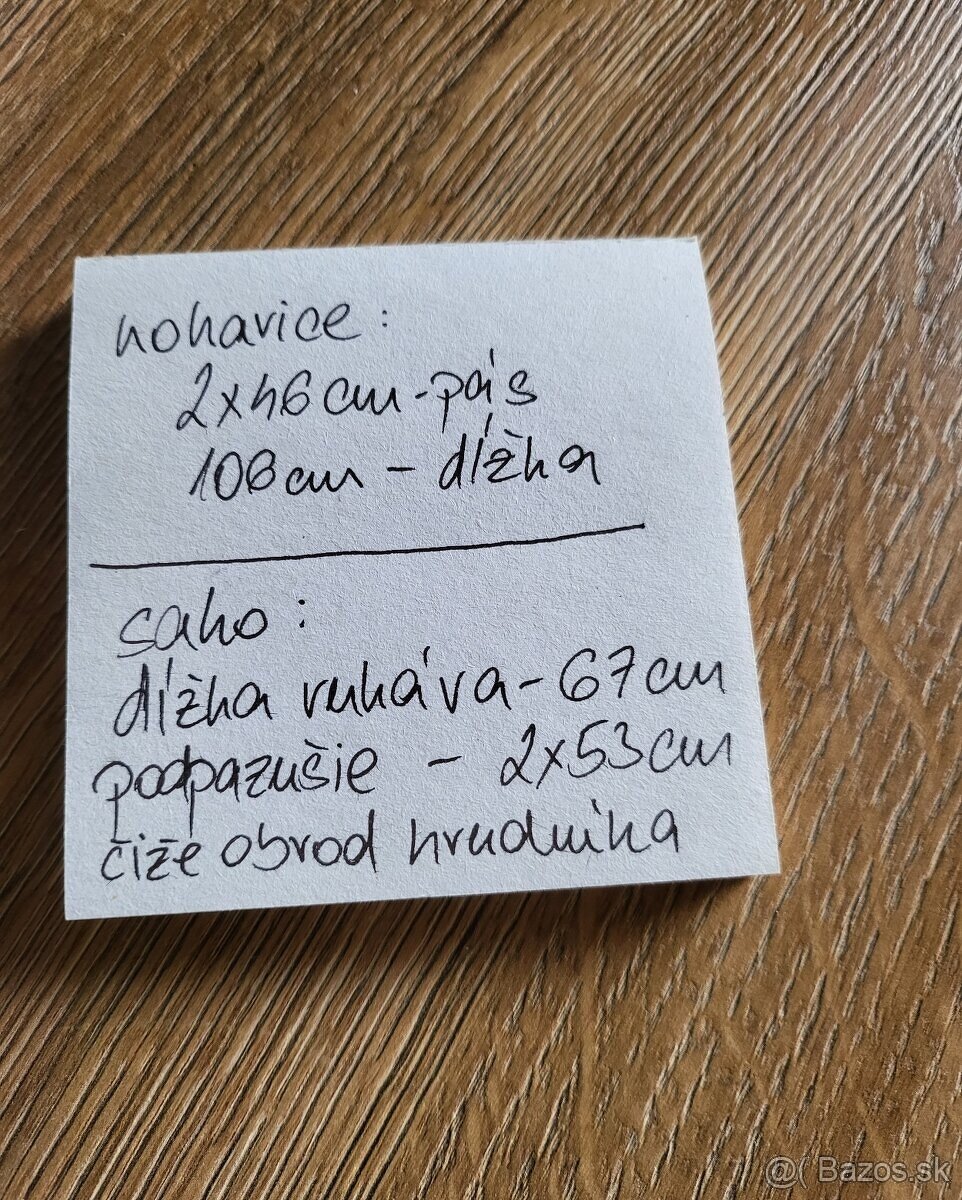 nohavice:
2x46cm-pás
106cm - dĺžka
sako:
dĺžka rukáva-67cm
podpazušie - 2x53cm
čiže obvod hrudníka
@( Bazos.sk